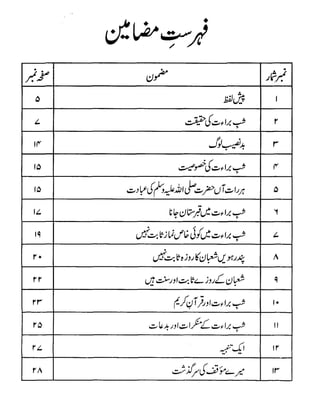 فہرستِ مضامین
نمبر شمار مضمون صفحہ نمبر
۱ پیش لفظ ۵
۲ شب براءت کی حقیقت ۷
۳ بدنصیب لوگ ۱۴
۴ شب براءت کی خصوصیت ۱۵
۵ ہر رات آں حضرت صلی اللہ علیہ وسلم کی عبادت ۱۵
۶ شب براءت میں قبرستان جانا ۱۷
۷ شب براءت میں کوئی خاص نماز ثابت نہیں ۱۹
۸ پندرہویں شعبان کا روزہ ثابت نہیں ۲۰
۹ شعبان کے روزے ثابت اور سنت ہیں ۲۲
۱۰ شب براءت اور قرآن کریم ۲۳
۱۱ شب براءت کے منکرات اور بدعات ۲۵
۱۲ ایک تنبیہ ۲۷
۱۳ میرے مؤقف کی سرگذشت ۲۸